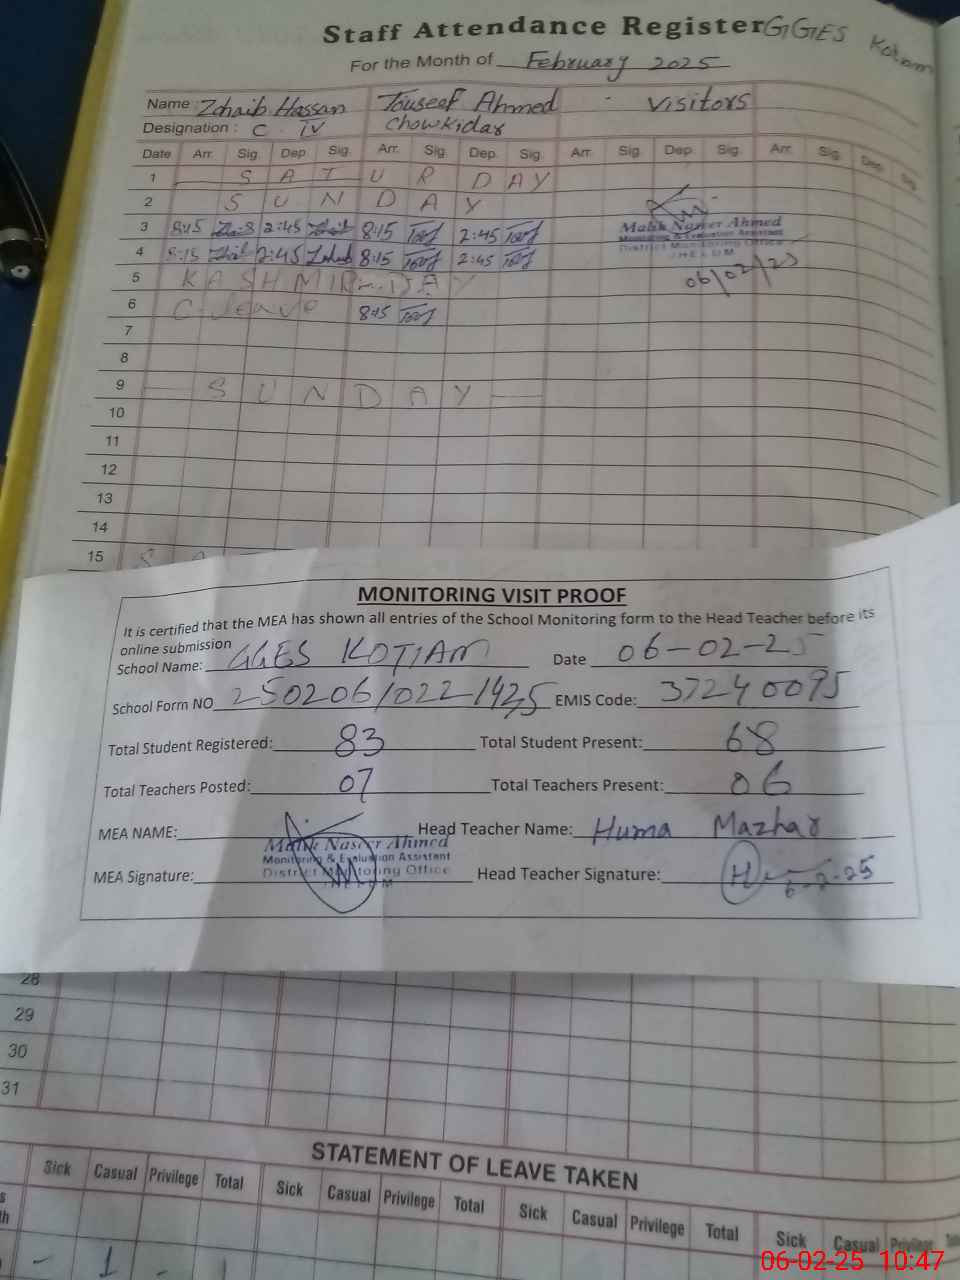 Staff Attendance Register GGES Kotam
For the Month of February 2025
Name : Zohaib Hassan Touseef Ahmed Visitors
Designation : C. IV Chowkidar
Date Arr. Sig. Dep. Sig. Arr. Sig. Dep. Sig. Arr. Sig. Dep. Sig. Arr. Sig. Dep. Sig.
1 S A T U R D A Y
2 S U N D A Y
3 8:15 2:45 8:15 2:45
Malik Naseer Ahmed
Monitoring & Evaluation Assistant
4 8:15 2:45 8:15 2:45
District Monitoring Office
JHELUM
5 KASHMIR DAY
06/02/25
6 C. leave 8:15
7
8
9 S U N D A Y
10
11
12
13
14
15 S
MONITORING VISIT PROOF
It is certified that the MEA has shown all entries of the School Monitoring form to the Head Teacher before its
online submission
School Name: GGES KOTIAM Date 06-02-25
School Form NO 250206/022/1425 EMIS Code: 37240095
Total Student Registered: 83 Total Student Present: 68
Total Teachers Posted: 07 Total Teachers Present: 06
MEA NAME: Head Teacher Name: Huma Mazhar
Malik Naseer Ahmed
Monitoring & Evaluation Assistant
District Monitoring Office
JHELUM
MEA Signature: Head Teacher Signature: H 6-2-25
28
29
30
31
STATEMENT OF LEAVE TAKEN
Sick Casual Privilege Total Sick Casual Privilege Total Sick Casual Privilege Total Sick Casual Privilege
- 1 -
06-02-25 10:47